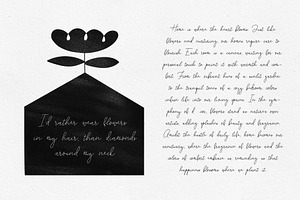 I'd rather wear flowers
in my hair, than diamonds
around my neck
Home is where the heart blooms. Just like
flowers and nurturing, our homes require care to
flourish. Each room is a canvas waiting for our
personal touch to paint it with warmth and com-
fort. From the vibrant hues of a sunlit garden
to the tranquil tones of a cozy bedroom, colors
infuse life into our living spaces. In the sym-
phony of d cor, flowers stand as nature's own
artists, adding splashes of beauty and fragrance.
Amidst the hustle of daily life, home becomes our
sanctuary, where the fragrance of flowers and the
colors of comfort embrace us, reminding us that
happiness blooms where we plant it.